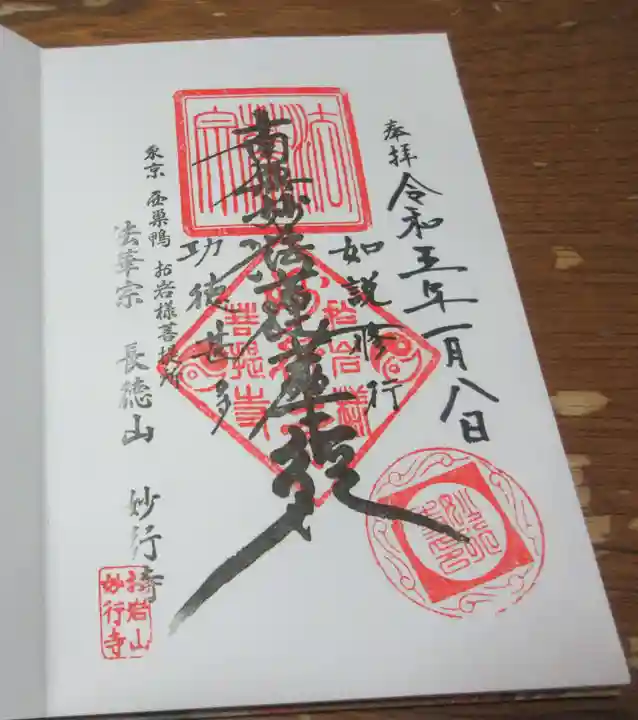 奉拝
令和五年一月八日
如説修行
南無妙法蓮華経
功徳甚多
東京 西巣鴨 お岩様菩提所
法華宗 長徳山 妙行寺
法華宗
お岩様
菩提寺
お岩山
妙行寺